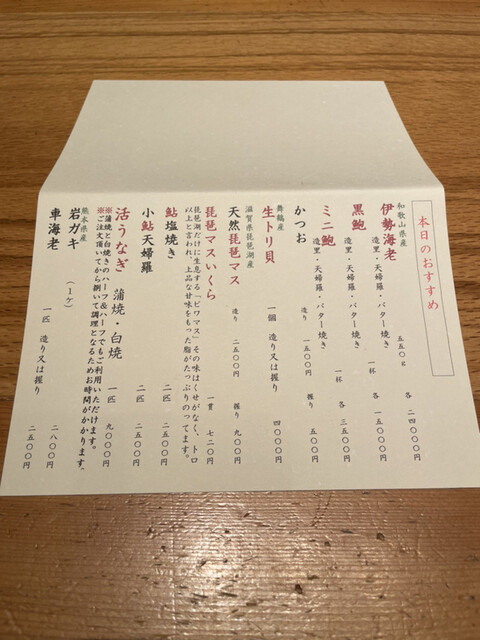 本日のおすすめ
和歌山県産
伊勢海老 五五〇g 各 二四〇〇〇円
造里・天婦羅・バター焼き
黒鮑 一杯 各 一五〇〇〇円
造里・天婦羅・バター焼き
ミニ鮑 一杯 各 三五〇〇円
造里・天婦羅・バター焼き
かつお 造り 一五〇〇円 握り 五〇〇円
舞鶴産
生トリ貝 一個 造り又は握り 四〇〇〇円
滋賀県琵琶湖産
天然琵琶マス 造り 二五〇〇円 握り 九〇〇円
琵琶マスいくら 一貫 七二〇円
琵琶湖だけに生息する「ビワマス」その味はくせがなく、トロ
以上と言われ、上品な甘味をもった脂がたっぷりのってます。
鮎塩焼き 二匹 二五〇〇円
小鮎天婦羅 二匹 二五〇〇円
活うなぎ 蒲焼・白焼 一匹 九〇〇〇円
※蒲焼と白焼きのハーフ&ハーフでもご利用いただけます。
※ご注文頂いてから捌いて調理となるためお時間がかかります。
熊本県産
岩ガキ (1ヶ) 二八〇〇円
車海老 一匹 造り又は握り 二五〇〇円